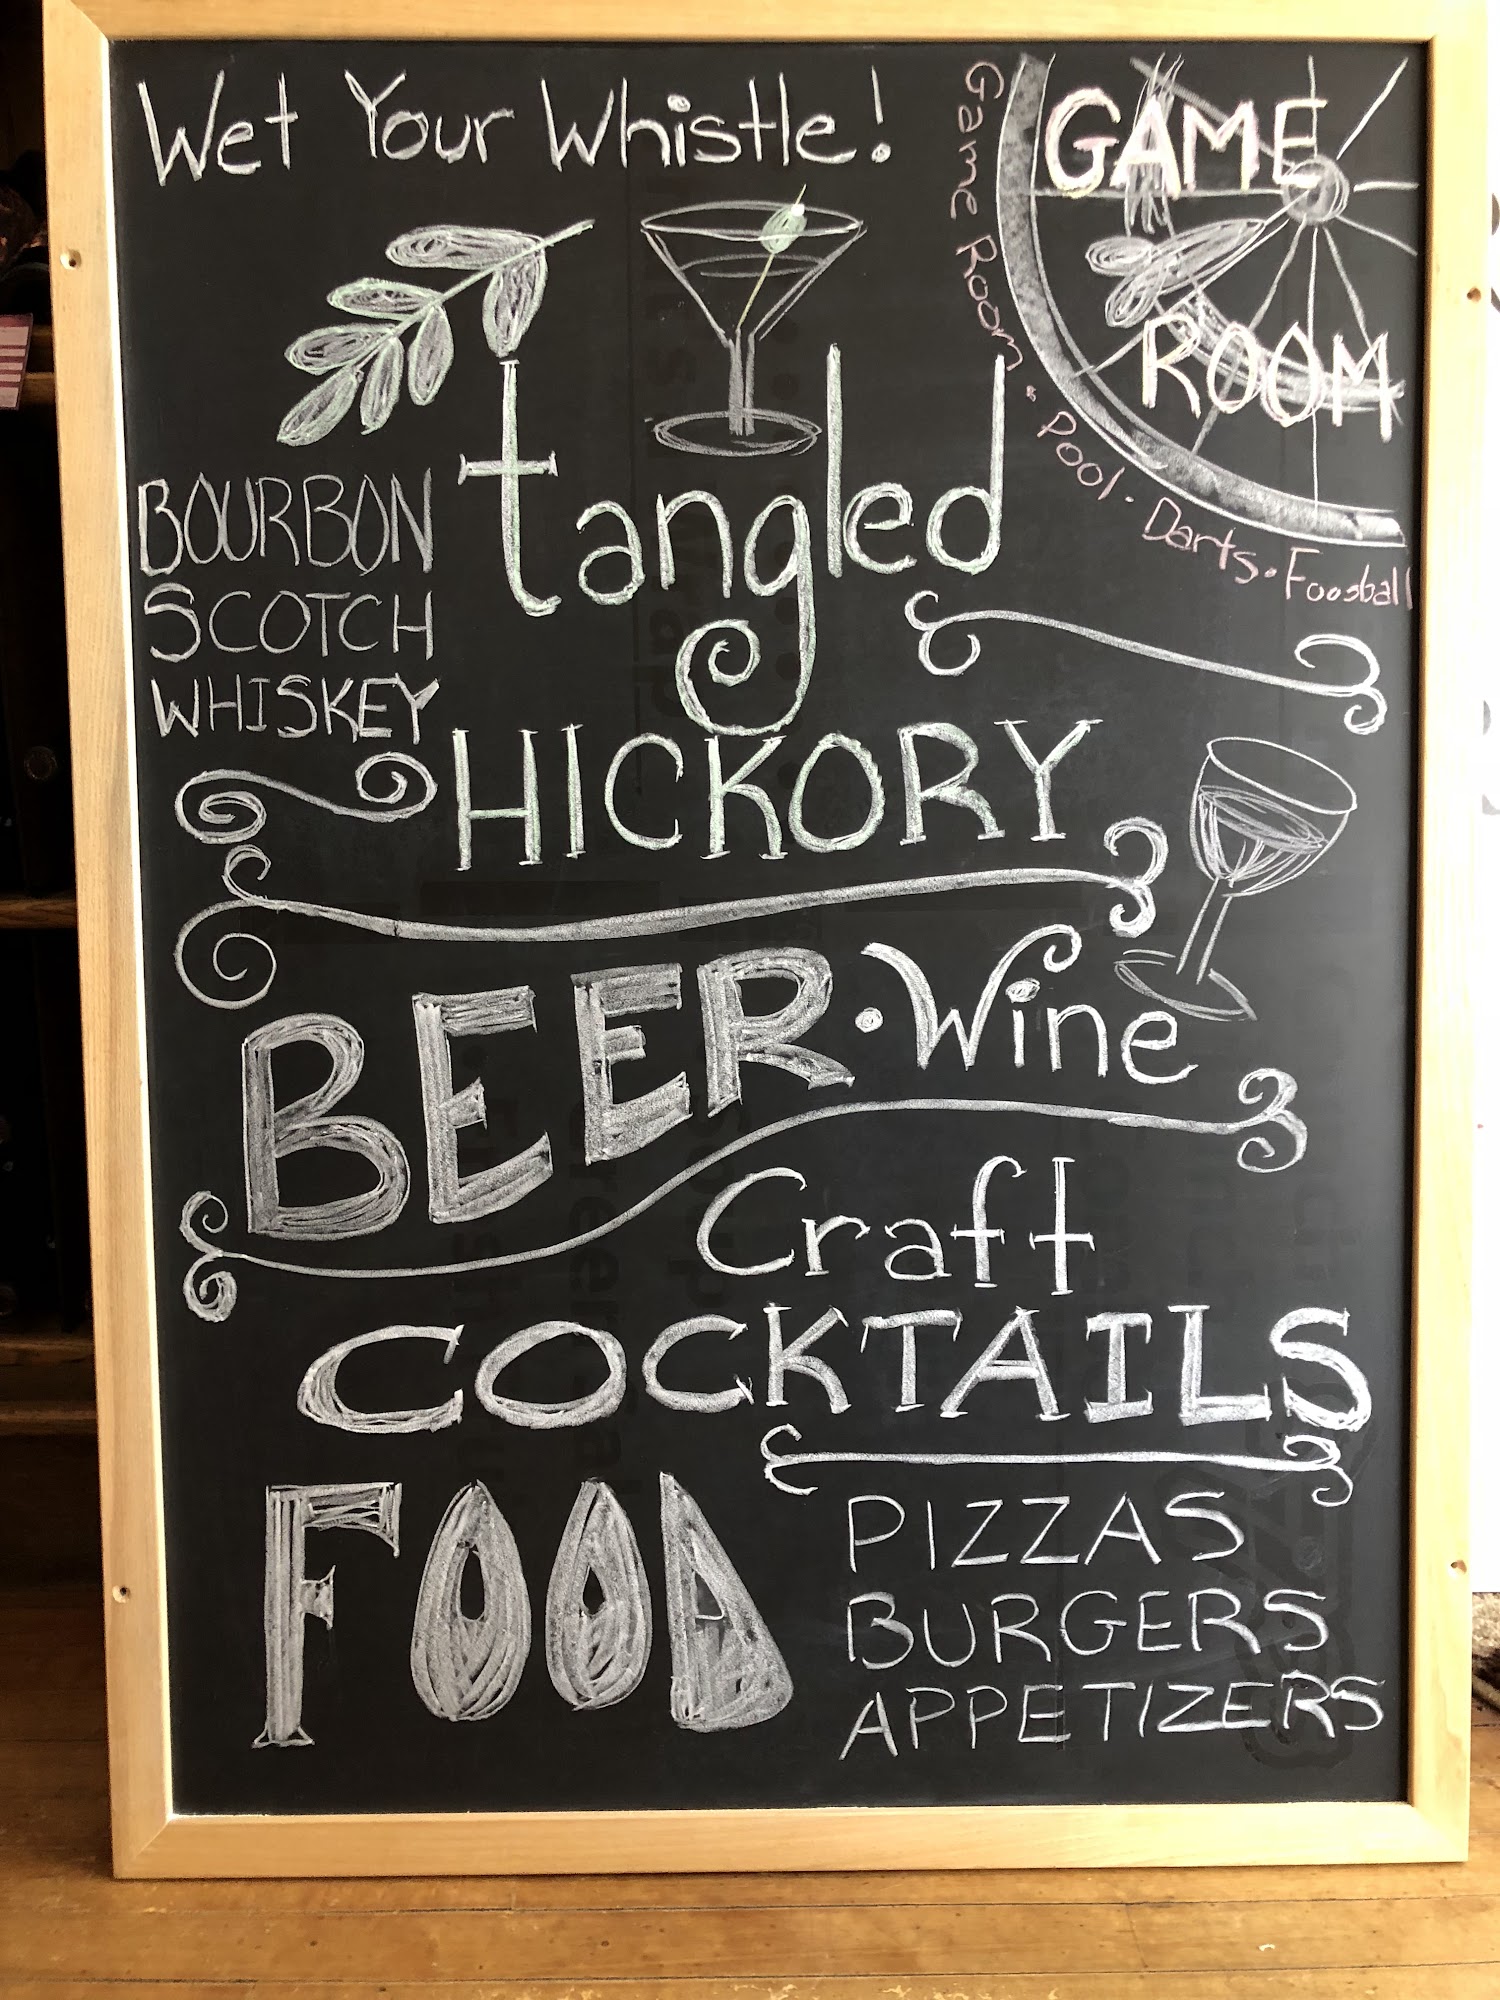 Wet Your Whistle!
GAME
ROOM
Game Room • Pool • Darts • Foosball
BOURBON
SCOTCH
WHISKEY
tangled
HICKORY
BEER • Wine
Craft
COCKTAILS
FOOD
PIZZAS
BURGERS
APPETIZERS